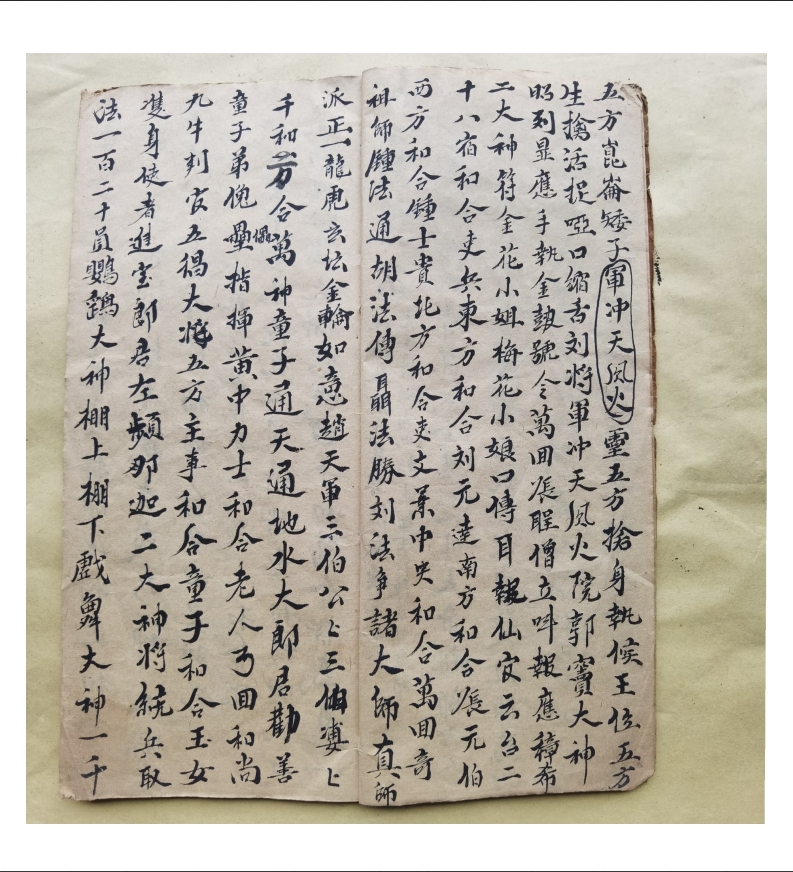 五方崑崙矮子軍冲天風火靈五方搶身執候王位五方
生擒活捉啞口縮舌刘將軍冲天風火院郭竇大神
昭列显應手執金鼓號令萬回張聖僧立叫報應
二大神符金花小姐梅花小娘口傳耳報仙官云台二
十八宿和合吏兵東方和合刘元達南方和合張元伯
西方和合鍾士貴北方和合史文業中央和合萬回哥
祖師鍾法通胡法傳聶法勝刘法爭諸大師真師
派正一龍虎玄坛金輪如意趙天軍三伯公公三伯婆婆
千和万合萬神童子通天通地水大郎君勸善
童子弟傀儡壘指揮黄中力士和合老人丐回和尚
九牛判官五猖大將五方主事和合童子和合玉女
隻身使者進宝郎君左頻那迦二大神將統兵取
法一百二十員鸚鵡大神棚上棚下戲舞大神一千